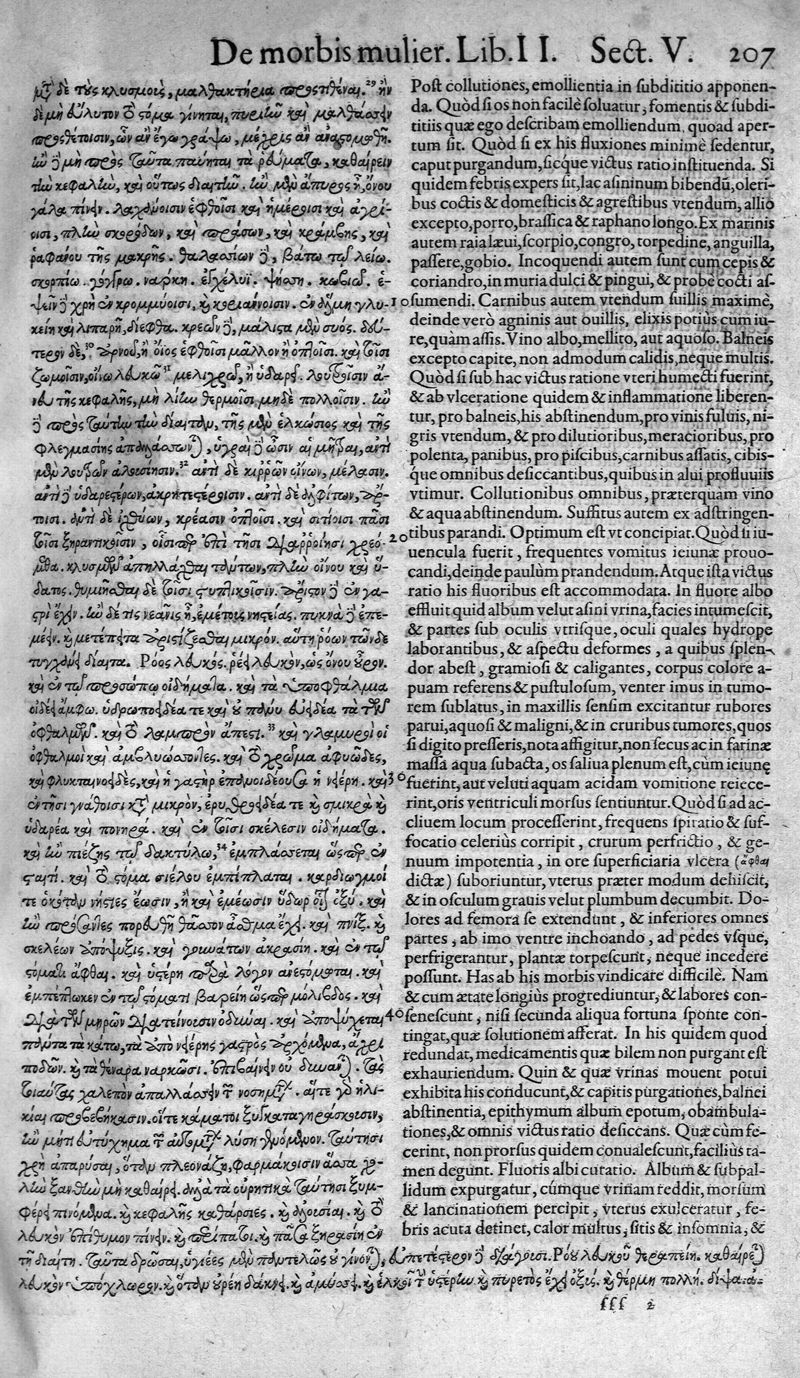 De morbis mulier. Lib. II. Sect. V. 207
δὲ τοὺς κλυσμοὺς, μαλθακτήρια προστιθέναι. ἢν
δὲ μὴ εὔλυτον τὸ στόμα γίνηται, πυριῇν καὶ μαλθάσσειν
προσθέτοισιν, ὧν ἂν ἐγὼ γράψω, μέχρις ἂν ἀναστομωθῇ.
ἢν δὲ μὴ πρὸς ταῦτα παύηται τὰ ῥεύματα, καθαίρειν
τὴν κεφαλὴν, καὶ οὕτως διαιτῇν. ἢν μὲν ἄπυρος ᾖ, ὄνου
γάλα πίνειν. λαχάνοισιν ἑφθοῖσι καὶ ἡμέροισι καὶ ἀγρί-
οισι, πλὴν σκορόδων, καὶ πράσων, καὶ κράμβης, καὶ
ῥαφάνου τῆς μακρῆς. θαλασσίων δὲ, βάτῳ τῷ λείῳ.
σκορπίῳ. γόγγρῳ. νάρκῃ. ἐγχέλυϊ. ψήσσῃ. κωβιῷ. ἕ-
ψειν δὲ χρὴ ἐν κρομμύοισι, καὶ κοριάννοισιν. ἐν ἅλμῃ γλυ-
κείῃ καὶ λιπαρῇ, δίεφθα. κρεῶν δὲ, μάλιστα μὲν συός. δεύ-
τερον δὲ, ἀρνοῦ, ἢ ὄϊος ἑφθοῖσι μᾶλλον ἢ ὀπτοῖσι. καὶ τοῖσι
ζωμοῖσιν, οἴνῳ λευκῷ μελιχρῷ, ἢ ὑδαρεῖ. λουτροῖσιν ἄ-
νευ τῆς κεφαλῆς, μὴ λίην θερμοῖσι, μηδὲ πολλοῖσιν. ἢν
δὲ πρὸς ταύτην τὴν δίαιταν, τῆς μὲν ἑλκώσιος καὶ τῆς
φλεγμασίης ἀπαλλάσσωνται, ὑγραὶ δὲ ὦσιν αἱ μῆτραι, ἀντὶ
μὲν λουτρῶν ἀλουσίῃσιν. ἀντὶ δὲ κιρρῶν οἴνων, μέλασιν.
ἀντὶ δὲ ὑδαρεστέρων, ἀκρητεστέροισιν. ἀντὶ δὲ ἀλφίτων, ἄρ-
τοισι. ἀντὶ δὲ ἰχθύων, κρέασιν ὀπτοῖσι. καὶ σιτίοισι πᾶσι
τοῖσι ξηραντικοῖσιν, οἷσιπερ ἐπὶ τῇσι διαρροίῃσι χρεό-
μεθα. κλυσμῶν ἀπηλλάχθαι πάντων, πλὴν οἴνου καὶ ὕ-
δατος. θυμιῆσθαι δὲ τοῖσι στυπτικοῖσιν. ἄριστον δὲ ἐν γα-
στρὶ ἔχειν. ἢν δέ τις νεᾶνις ᾖ, ἐμέτους νηστείας. πυκνὰ δὲ ἐπε-
μέειν. καὶ μετέπειτα ἀριστίζεσθαι μικρόν. αὕτη ῥόων τῶνδε
τυγχάνει δίαιτα. Ρόος λευκός. ῥέει λευκὸν, ὡς ὄνου οὖρον.
καὶ ἐν τῷ προσώπῳ οἰδήματα. καὶ τὰ ὑποφθάλμια
οἰδέει ἄμφω. ὑδρωποειδέα τε καὶ οὐ πάνυ εὐειδέα τὰ τῶν
ὀφθαλμῶν. καὶ τὸ λαμπρὸν ἄπεστι. καὶ γλαμυροὶ οἱ
ὀφθαλμοὶ καὶ ἀμβλυώσσοντες. καὶ τὸ χρῶμα ἀφυῶδες,
καὶ φλυκταινοειδὲς, καὶ ἡ γαστὴρ ἐπανοιδέουσα ἡ νείρη. καὶ
ἐν τῇσι γνάθοισι κατὰ μικρὸν, ἐρυθροειδέα τε καὶ σμικρὰ καὶ
ὑδαρέα καὶ πονηρά. καὶ ἐν τοῖσι σκέλεσιν οἰδήματα.
καὶ ἢν πιέζῃς τῷ δακτύλῳ, ἐμπλάσσεται ὥσπερ ἐν
σταιτί. καὶ τὸ στόμα σιέλου ἐμπίπλαται. καρδιωγμοί
τε ὁκόταν νήστιες ἔωσιν, ἢ καὶ ἐμέωσιν ὕδωρ ὀξύ. καὶ
ἢν πρὸς ἄναντες πορευθῇ θᾶσσον ἆσθμα ἔχει. καὶ πνίξ. καὶ
σκελέων ἀπόψυξις. καὶ γουνάτων ἀκρασίη. καὶ ἐν τῷ
στόματι ἄφθαι. καὶ ὑστέρη παρὰ λόγον ἀνεστόμωται. καὶ
ἐμπέπτωκεν ἐν τῷ στόματι βαρείη ὥσπερ μόλιβδος. καὶ
διὰ τῶν μηρῶν διατείνουσιν ὀδύναι. καὶ ἀποψύχεται
πάντα τὰ κάτω, τὰ ἀπὸ νείρης γαστρὸς ἀρχόμενα, ἄχρι
ποδῶν. καὶ τὰ θέναρα ναρκῶσι. ἐπιβαίνειν οὐ δύνανται. τὰς
τοιαύτας χαλεπὸν ἀπαλλάσσειν τῶν νοσημάτων. αἵ τε γὰρ ἡλι-
κίαι προβεβήκασιν. οἵ τε κάματοι ξυγκαταγηράσκουσιν,
ἢν μή τι εὐτύχημα τῶν αὐτομάτων λύσῃ γενόμενον. ταύτῃσι
χρὴ ἀπαρύσαι, ὅταν πλεονάζῃ, φαρμάκοισιν ἅσσα χο-
λὴν ξανθὴν μὴ καθαίρει. ἀλλὰ τὰ οὐρητικὰ ταύτῃσι ξυμ-
φέρει πινόμενα. καὶ κεφαλῆς καθάρσιες. καὶ ἀλουσίαι. καὶ τὸ
λευκὸν ἐπίθυμον πίνειν. καὶ περίπατοι. καὶ πᾶσα ξηρασίη ἐν
τῇ διαίτῃ. ταῦτα δρῶσαι, ὑγιέες μὲν παντελῶς οὐ γίνονται, εὐπετέστερον δὲ διάγουσι. Ρόου λευκοῦ θεραπείη. καθαίρεται
λευκὸν ὑπόχλωρον. καὶ ὅταν οὐρέῃ δάκνει. καὶ ἀμύσσει. καὶ ἑλκοῖ τὴν ὑστέρην. καὶ πυρετὸς ἔχει ὀξύς. καὶ θέρμη πολλή. δίψα.
Post collutiones, emollientia in subdititio apponen-
da. Quòd si os non facilè soluatur, fomentis & subdi-
titiis quæ ego describam emolliendum, quoad aper-
tum sit. Quòd si ex his fluxiones minimè sedentur,
caput purgandum, sicque victus ratio instituenda. Si
quidem febris expers sit, lac asininum bibendũ, oleri-
bus coctis & domesticis & agrestibus vtendum, allio
excepto, porro, brassica & raphano longo. Ex marinis
autem raia læui, scorpio, congro, torpedine, anguilla,
passere, gobio. Incoquendi autem sunt cum cepis &
coriandro, in muria dulci & pingui, & probè cocti as-
10 sumendi. Carnibus autem vtendum suillis maximè,
deinde verò agninis aut ouillis, elixis potiùs cum iu-
re, quàm assis. Vino albo, mellito, aut aquoso. Balneis
excepto capite, non admodum calidis, neque multis.
Quòd si sub hac victus ratione vteri humecti fuerint,
& ab vlceratione quidem & inflammatione liberen-
tur, pro balneis, his abstinendum, pro vinis fuluis, ni-
gris vtendum, & pro dilutioribus, meracioribus, pro
polenta, panibus, pro piscibus, carnibus assatis, cibis-
que omnibus desiccantibus, quibus in alui profluuiis
vtimur. Collutionibus omnibus, præterquam vino
& aqua abstinendum. Suffitus autem ex adstringen-
20 tibus parandi. Optimum est vt concipiat. Quòd si iu-
uencula fuerit, frequentes vomitus ieiunæ prouo-
candi, deinde paulùm prandendum. Atque ista victus
ratio his fluoribus est accommodata. In fluore albo
effluit quid album velut asini vrina, facies intumescit,
& partes sub oculis vtrisque, oculi quales hydrope
laborantibus, & aspectu deformes, a quibus splen-
dor abest, gramiosi & caligantes, corpus colore a-
puam referens & pustulosum, venter imus in tumo-
rem sublatus, in maxillis sensim excitantur rubores
parui, aquosi & maligni, & in cruribus tumores, quos
si digito presseris, nota affigitur, non secus ac in farinæ
massa aqua subacta, os saliua plenum est, cùm ieiunę
30 fuerint, aut veluti aquam acidam vomitione reiece-
rint, oris ventriculi morsus sentiuntur. Quòd si ad ac-
cliuem locum processerint, frequens spiratio & suf-
focatio celeriùs corripit, crurum perfrictio, & ge-
nuum impotentia, in ore superficiaria vlcera (ἄφθαι
dictæ) suboriuntur, vterus præter modum dehiscit,
& in osculum grauis velut plumbum decumbit. Do-
lores ad femora se extendunt, & inferiores omnes
partes, ab imo ventre inchoando, ad pedes vsque,
perfrigerantur, plantæ torpescunt, neque incedere
possunt. Has ab his morbis vindicare difficilè. Nam
& cum ætate longiùs progrediuntur, & labores con-
40 senescunt, nisi secunda aliqua fortuna sponte con-
tingat, quæ solutionem afferat. In his quidem quod
redundat, medicamentis quæ bilem non purgant est
exhauriendum. Quin & quæ vrinas mouent potui
exhibita his conducunt, & capitis purgationes, balnei
abstinentia, epithymum album epotum, obambula-
tiones, & omnis victus ratio desiccans. Quæ cùm fe-
cerint, non prorsus quidem conualescunt, faciliùs ta-
men degunt. Fluoris albi curatio. Album & subpal-
lidum expurgatur, cúmque vrinam reddit, morsum
& lancinationem percipit, vterus exulceratur, fe-
bris acuta detinet, calor multus, sitis & insomnia, &
fff 2